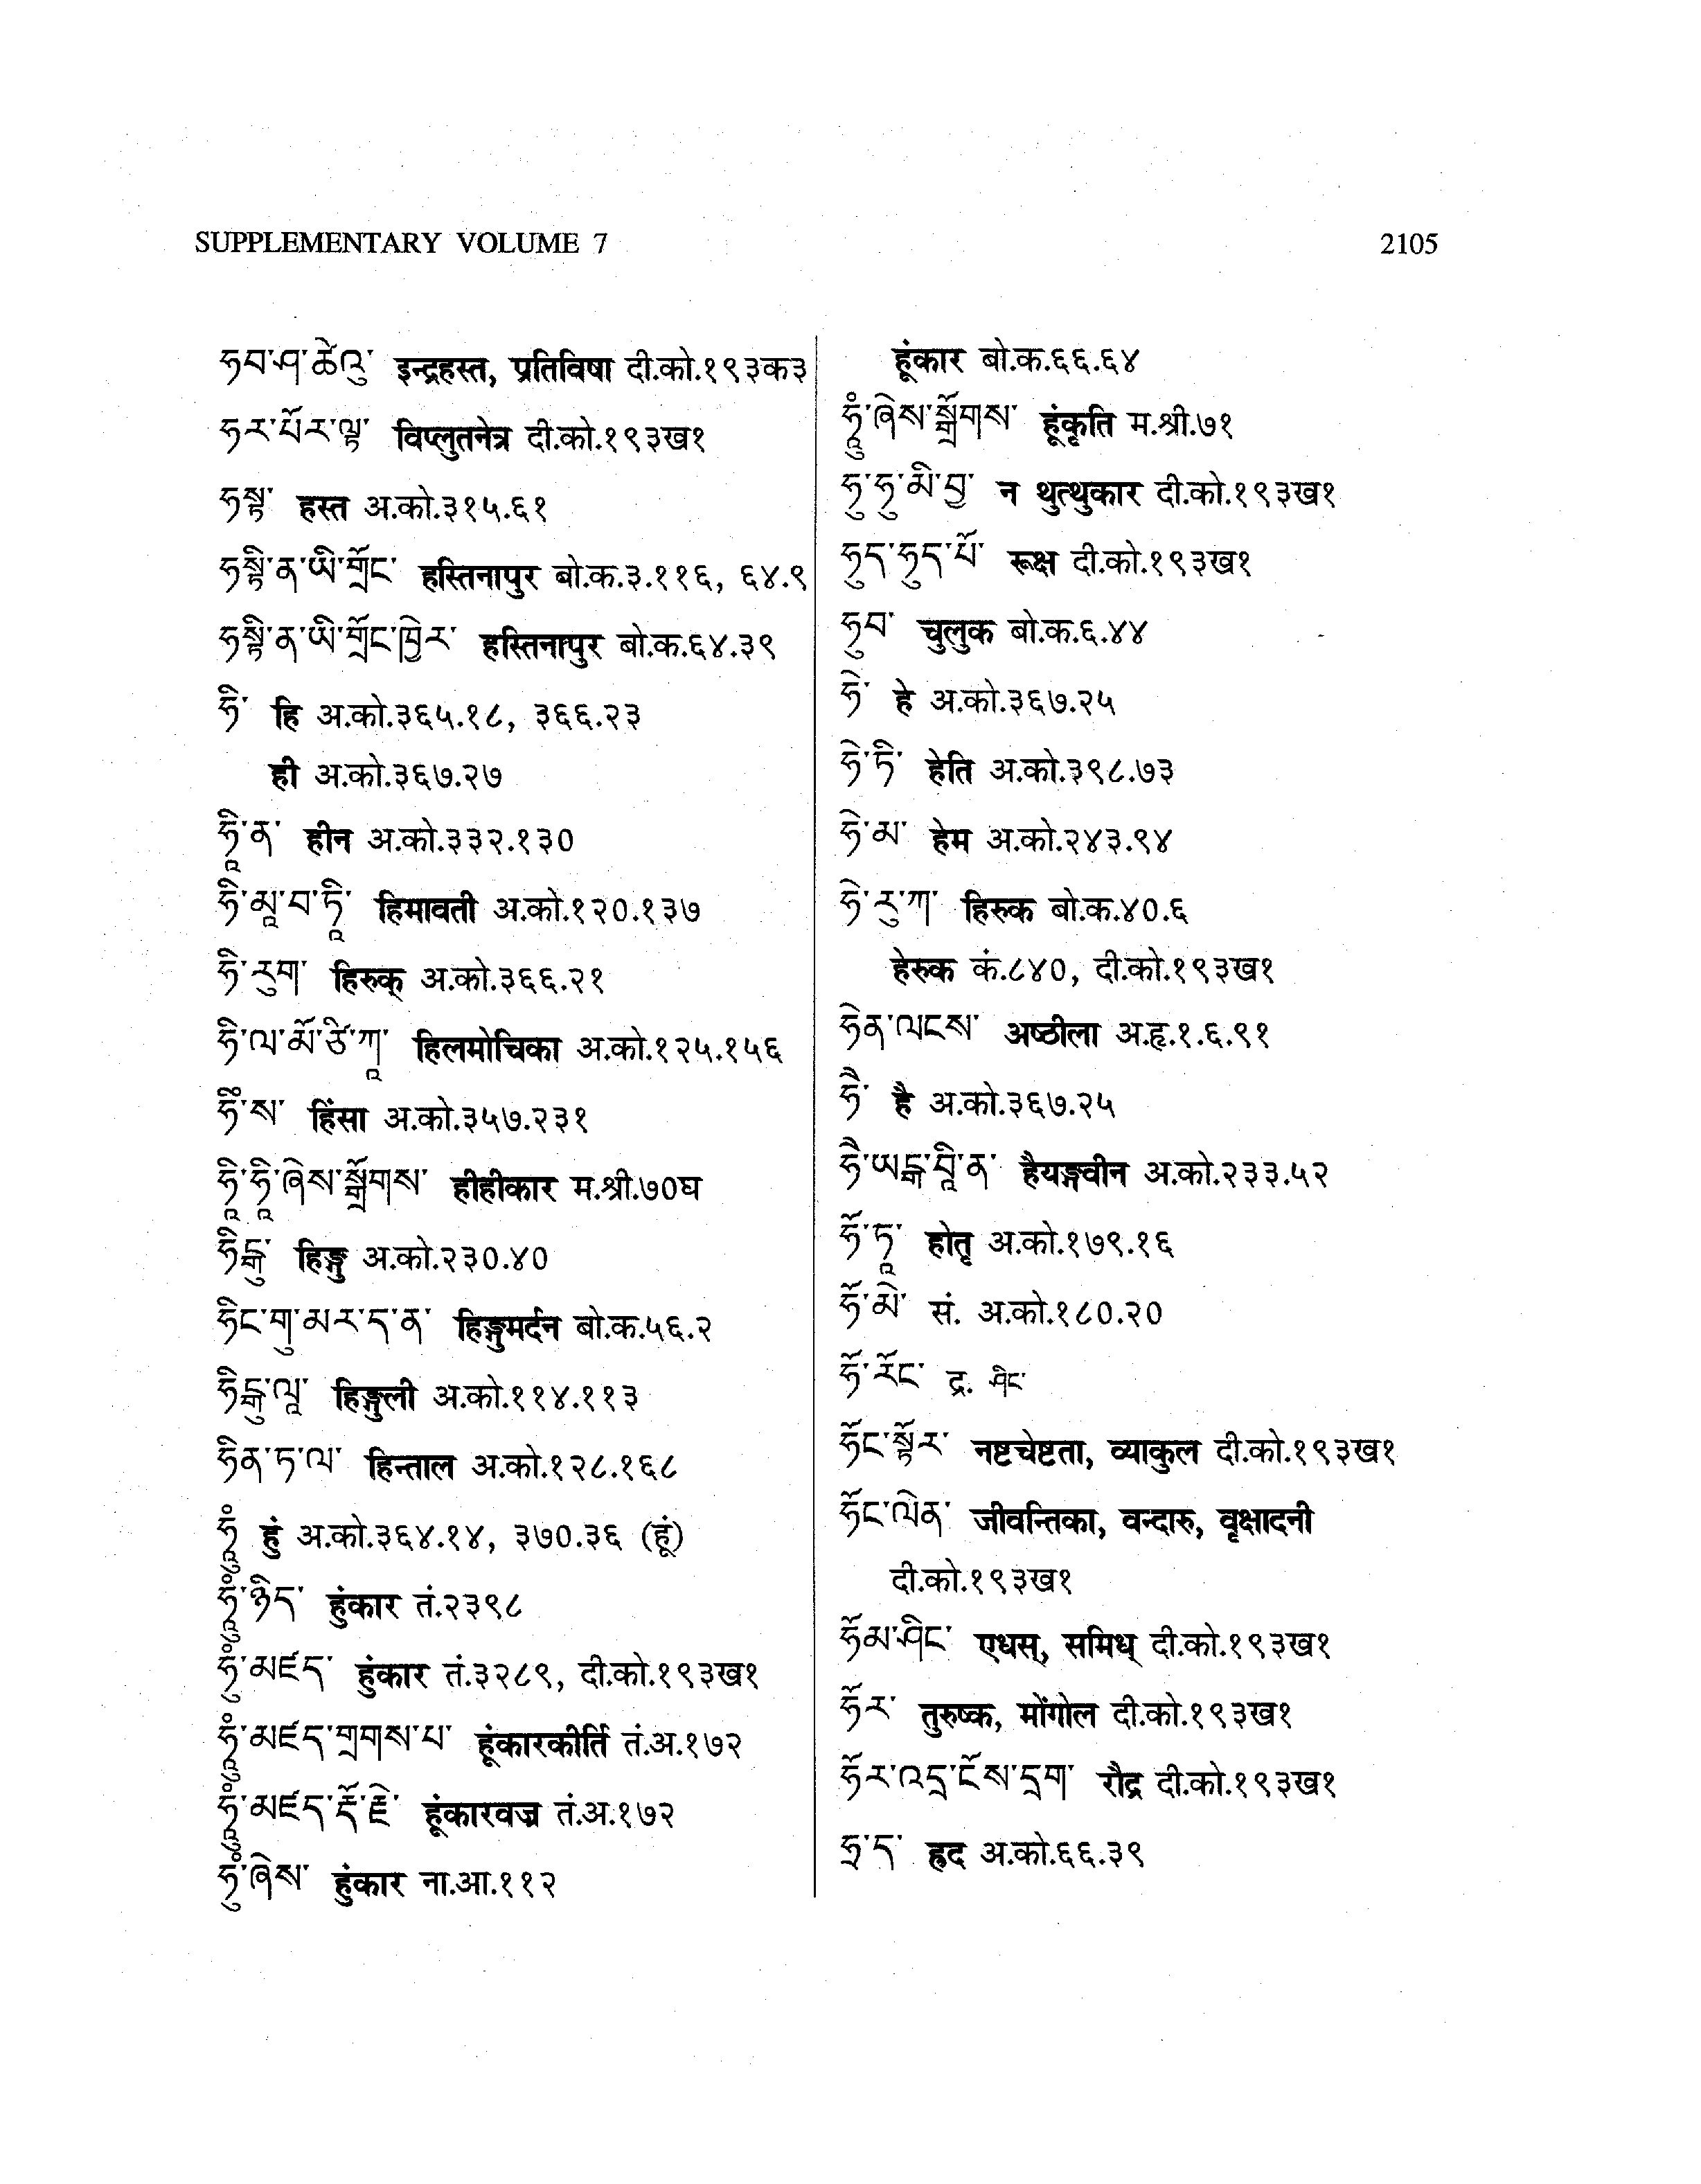 SUPPLEMENTARY VOLUME 7 2105
ཧབ་ཤ་ཚེའུ་ इन्द्रहस्त, प्रतिविषा दी.को.१९३क३
ཧར་པོར་ལྟ་ विप्लुतनेत्र दी.को.१९३ख१
ཧསྟ་ हस्त अ.को.३१५.६१
ཧསྟི་ན་ཡི་གྲོང་ हस्तिनापुर बो.क.३.११६, ६४.९
ཧསྟི་ན་ཡི་གྲོང་ཁྱེར་ हस्तिनापुर बो.क.६४.३९
ཧི་ हि अ.को.३६५.१८, ३६६.२३
ही अ.को.३६७.२७
ཧཱི་ན་ हीन अ.को.३३२.१३०
ཧི་མཱ་བ་ཏཱི་ हिमावती अ.को.१२०.१३७
ཧི་རུག་ हिरुक् अ.को.३६६.२१
ཧི་ལ་མོ་ཙི་ཀཱ་ हिलमोचिका अ.को.१२५.१५६
ཧིཾ་ས་ हिंसा अ.को.३५७.२३१
ཧཱི་ཧཱི་ཞེས་སྒྲོགས་ हीहीकार म.श्री.७०घ
ཧིངྒུ་ हिङ्गु अ.को.२३०.४०
ཧིང་གུ་མར་ད་ན་ हिङ्गुमर्दन बो.क.५६.२
ཧིངྒུ་ལཱ་ हिङ्गुली अ.को.११४.११३
ཧིན་ཏ་ལ་ हिन्ताल अ.को.१२८.१६८
ཧཱུྃ་ हुं अ.को.३६४.१४, ३७०.३६ (हूं)
ཧཱུྃ་ཉིད་ हुंकार तं.२३९८
ཧུྃ་མཛད་ हुंकार तं.३२८९, दी.को.१९३ख१
ཧཱུྃ་མཛད་གྲགས་པ་ हूंकारकीर्ति तं.अ.१७२
ཧཱུྃ་མཛད་རྡོ་རྗེ་ हूंकारवज्र तं.अ.१७२
ཧུྃ་ཞེས་ हुंकार ना.आ.११२
हूंकार बो.क.६६.६४
ཧཱུྃ་ཞེས་སྒྲོགས་ हूंकृति म.श्री.७१
ཧུ་ཧུ་མི་བྱ་ न थुत्थुकार दी.को.१९३ख१
ཧུད་ཧུད་པོ་ रूक्ष दी.को.१९३ख१
ཧུབ་ चुलुक बो.क.६.४४
ཧེ་ हे अ.को.३६७.२५
ཧེ་ཏི་ हेति अ.को.३९८.७३
ཧེ་མ་ हेम अ.को.२४३.९४
ཧེ་རུ་ཀ་ हिरुक बो.क.४०.६
हेरुक कं.८४०, दी.को.१९३ख१
ཧེན་ལངས་ अष्ठीला अ.हृ.१.६.९१
ཧཻ་ है अ.को.३६७.२५
ཧཻ་ཡངྒ་བཱི་ན་ हैयङ्गवीन अ.को.२३३.५२
ཧོ་ཏཱ་ होतृ अ.को.१७९.१६
ཧོ་མེ་ सं. अ.को.१८०.२०
ཧོ་རོང་ द्र. ཤིང་
ཧོང་སྟོར་ नष्टचेष्टता, व्याकुल दी.को.१९३ख१
ཧོང་ལེན་ जीवन्तिका, वन्दारु, वृक्षादनी
दी.को.१९३ख१
ཧོམ་ཤིང་ एधस्, समिध् दी.को.१९३ख१
ཧོར་ तुरुष्क, मोंगोल दी.को.१९३ख१
ཧོར་འདྲ་ངོས་དྲག་ रौद्र दी.को.१९३ख१
ཧྲ་ད་ ह्रद अ.को.६६.३९